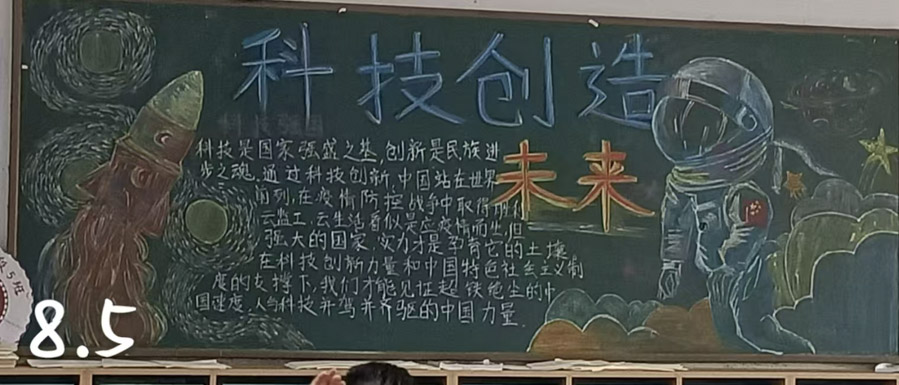 科技创造
未来
科技是国家强盛之基,创新是民族进
步之魂,通过科技创新,中国站在世界
前列,在疫情防控战争中取得胜利
云监工、云生活看似是应疫情而生,但
强大的国家实力才是孕育它的土壤
在科技创新力量和中国特色社会主义制
度的支撑下,我们才能见证超铁绝尘的中
国速度,人与科技并驾并齐驱的中国力量
5班
8.5